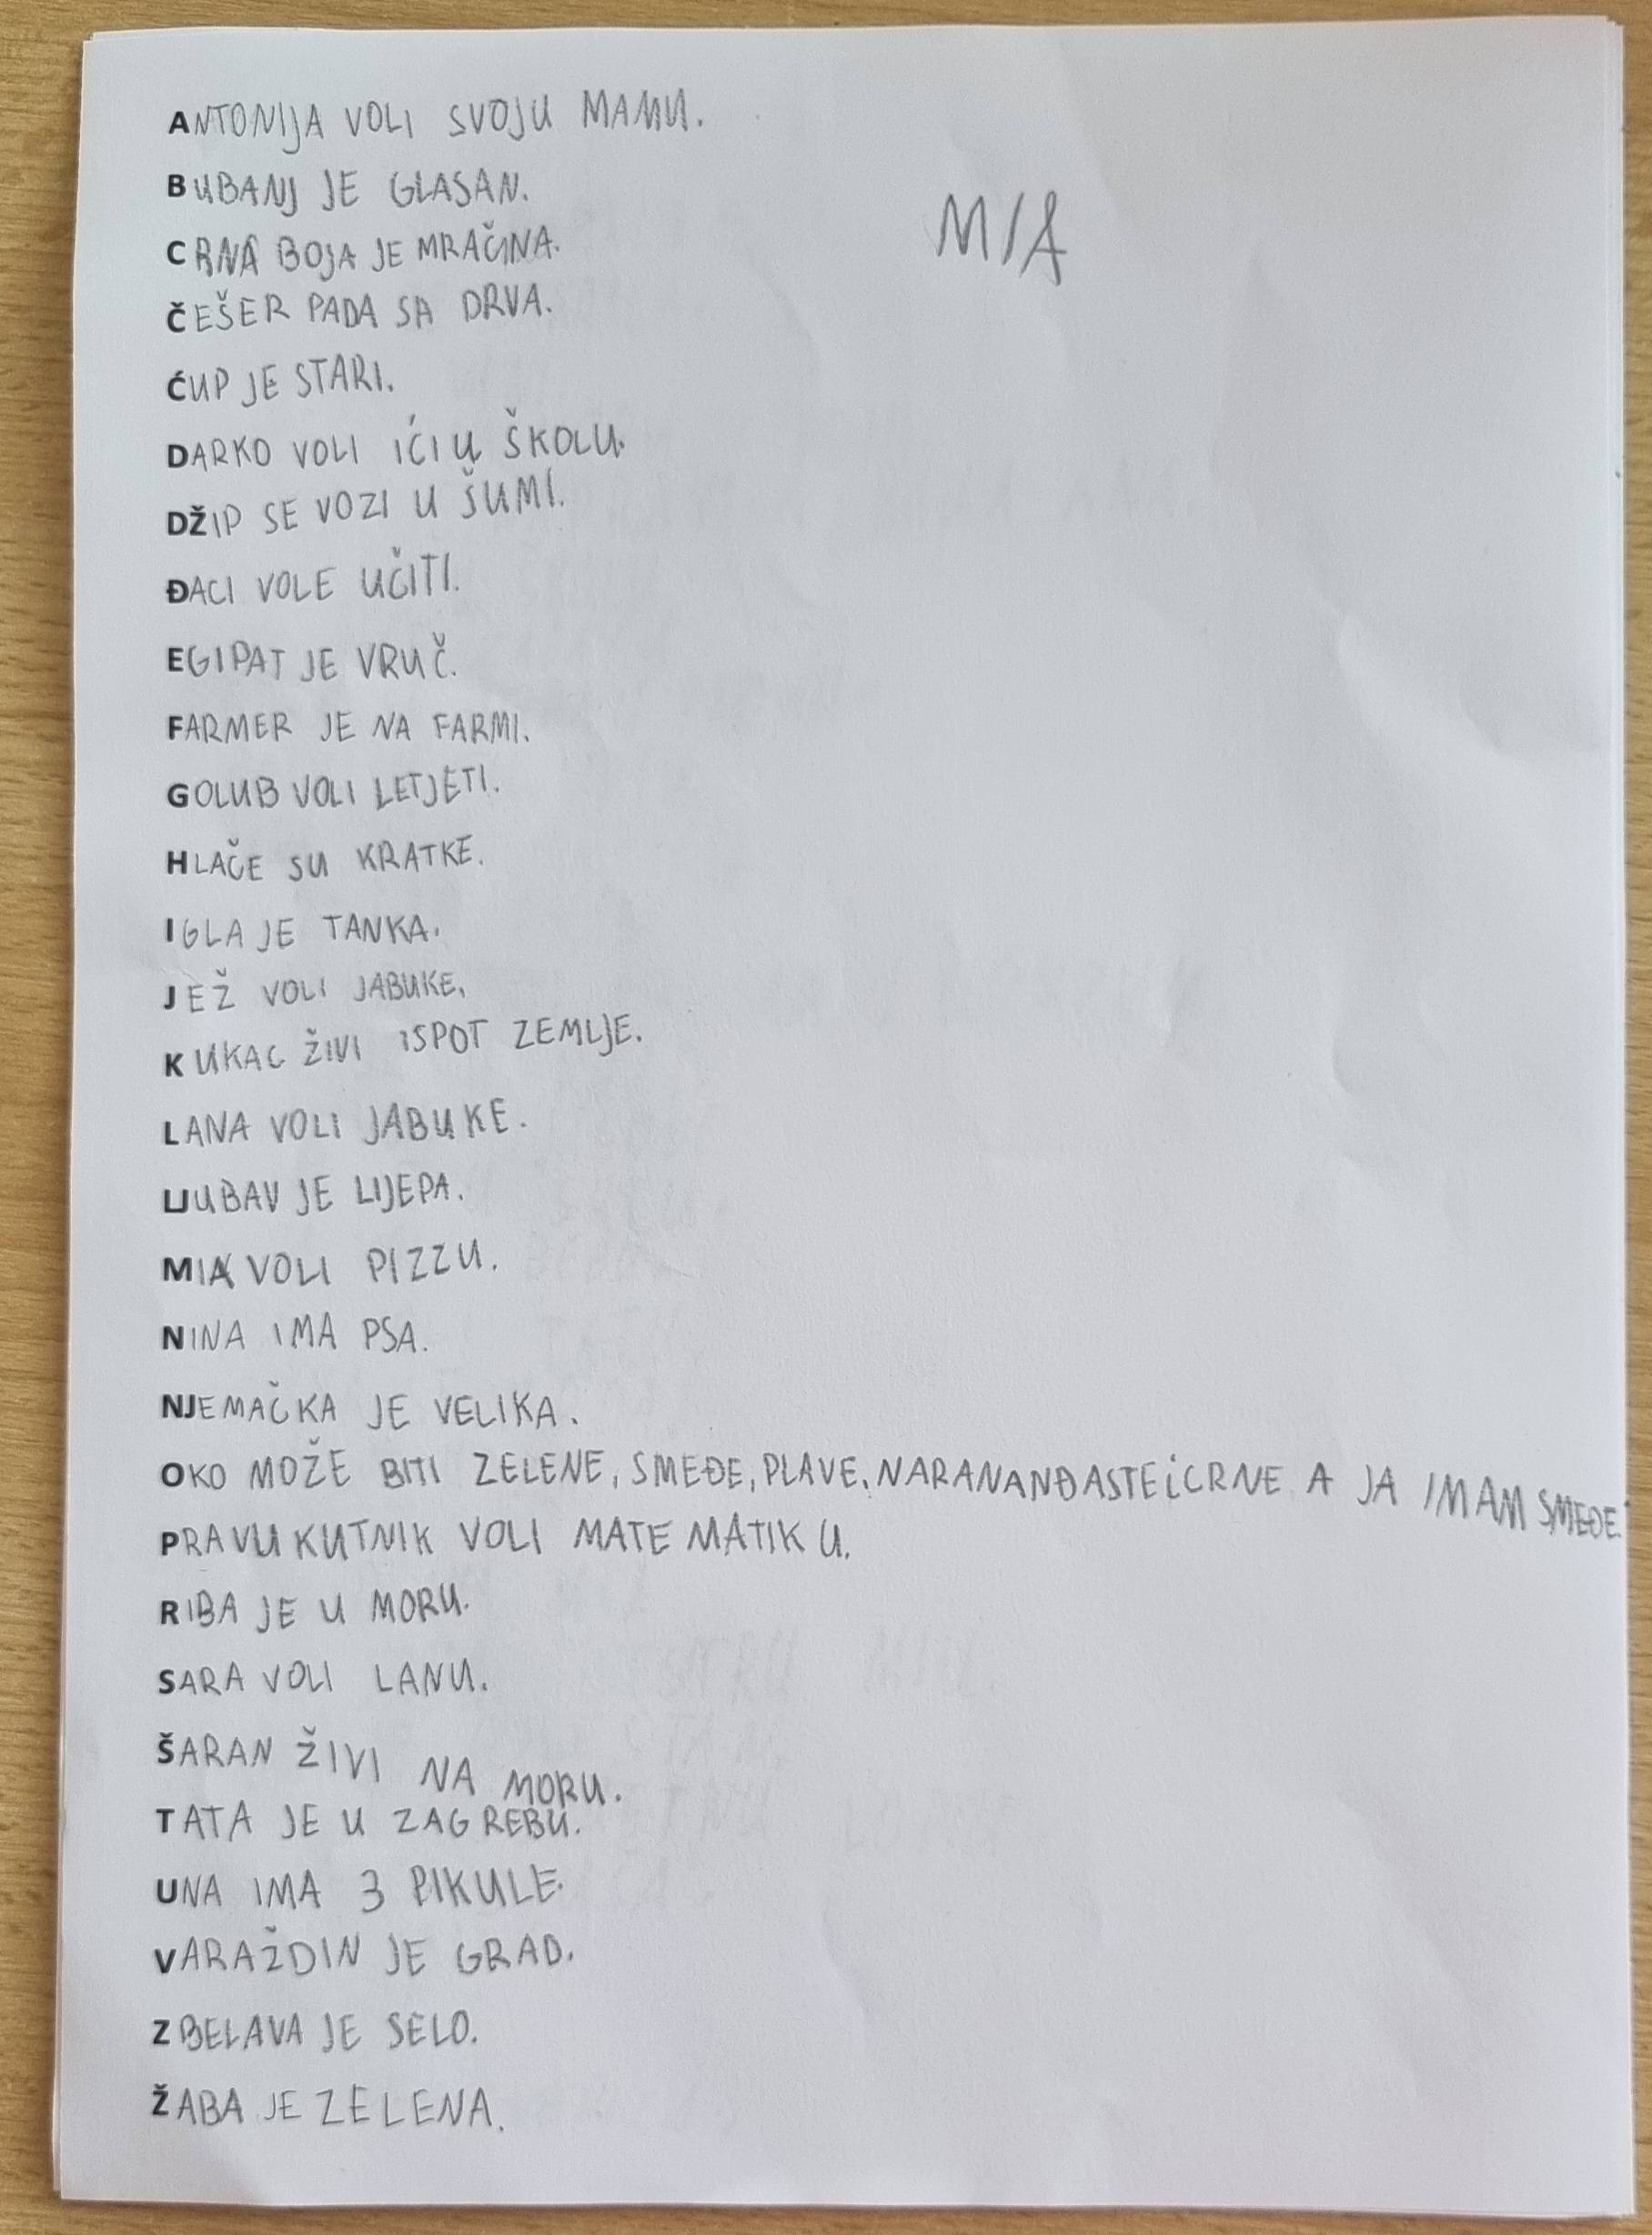 ANTONIJA VOLI SVOJU MAMU.
BUBANJ JE GLASAN.
MIA
CRNA BOJA JE MRAČNA.
ČEŠER PADA SA DRVA.
ĆUP JE STARI.
DARKO VOLI IĆI U ŠKOLU.
DŽIP SE VOZI U ŠUMI.
ĐACI VOLE UČITI.
EGIPAT JE VRUČ.
FARMER JE NA FARMI.
GOLUB VOLI LETJETI.
HLAČE SU KRATKE.
IGLA JE TANKA.
JEŽ VOLI JABUKE.
KUKAC ŽIVI ISPOT ZEMLJE.
LANA VOLI JABUKE.
LJUBAV JE LIJEPA.
MIA VOLI PIZZU.
NINA IMA PSA.
NJEMAČKA JE VELIKA.
OKO MOŽE BITI ZELENE, SMEĐE, PLAVE, NARANANĐASTE i CRNE A JA IMAM SMEĐE.
PRAVUKUTNIK VOLI MATEMATIKU.
RIBA JE U MORU.
SARA VOLI LANU.
ŠARAN ŽIVI NA MORU.
TATA JE U ZAGREBU.
UNA IMA 3 PIKULE.
VARAŽDIN JE GRAD.
ZBELAVA JE SELO.
ŽABA JE ZELENA.